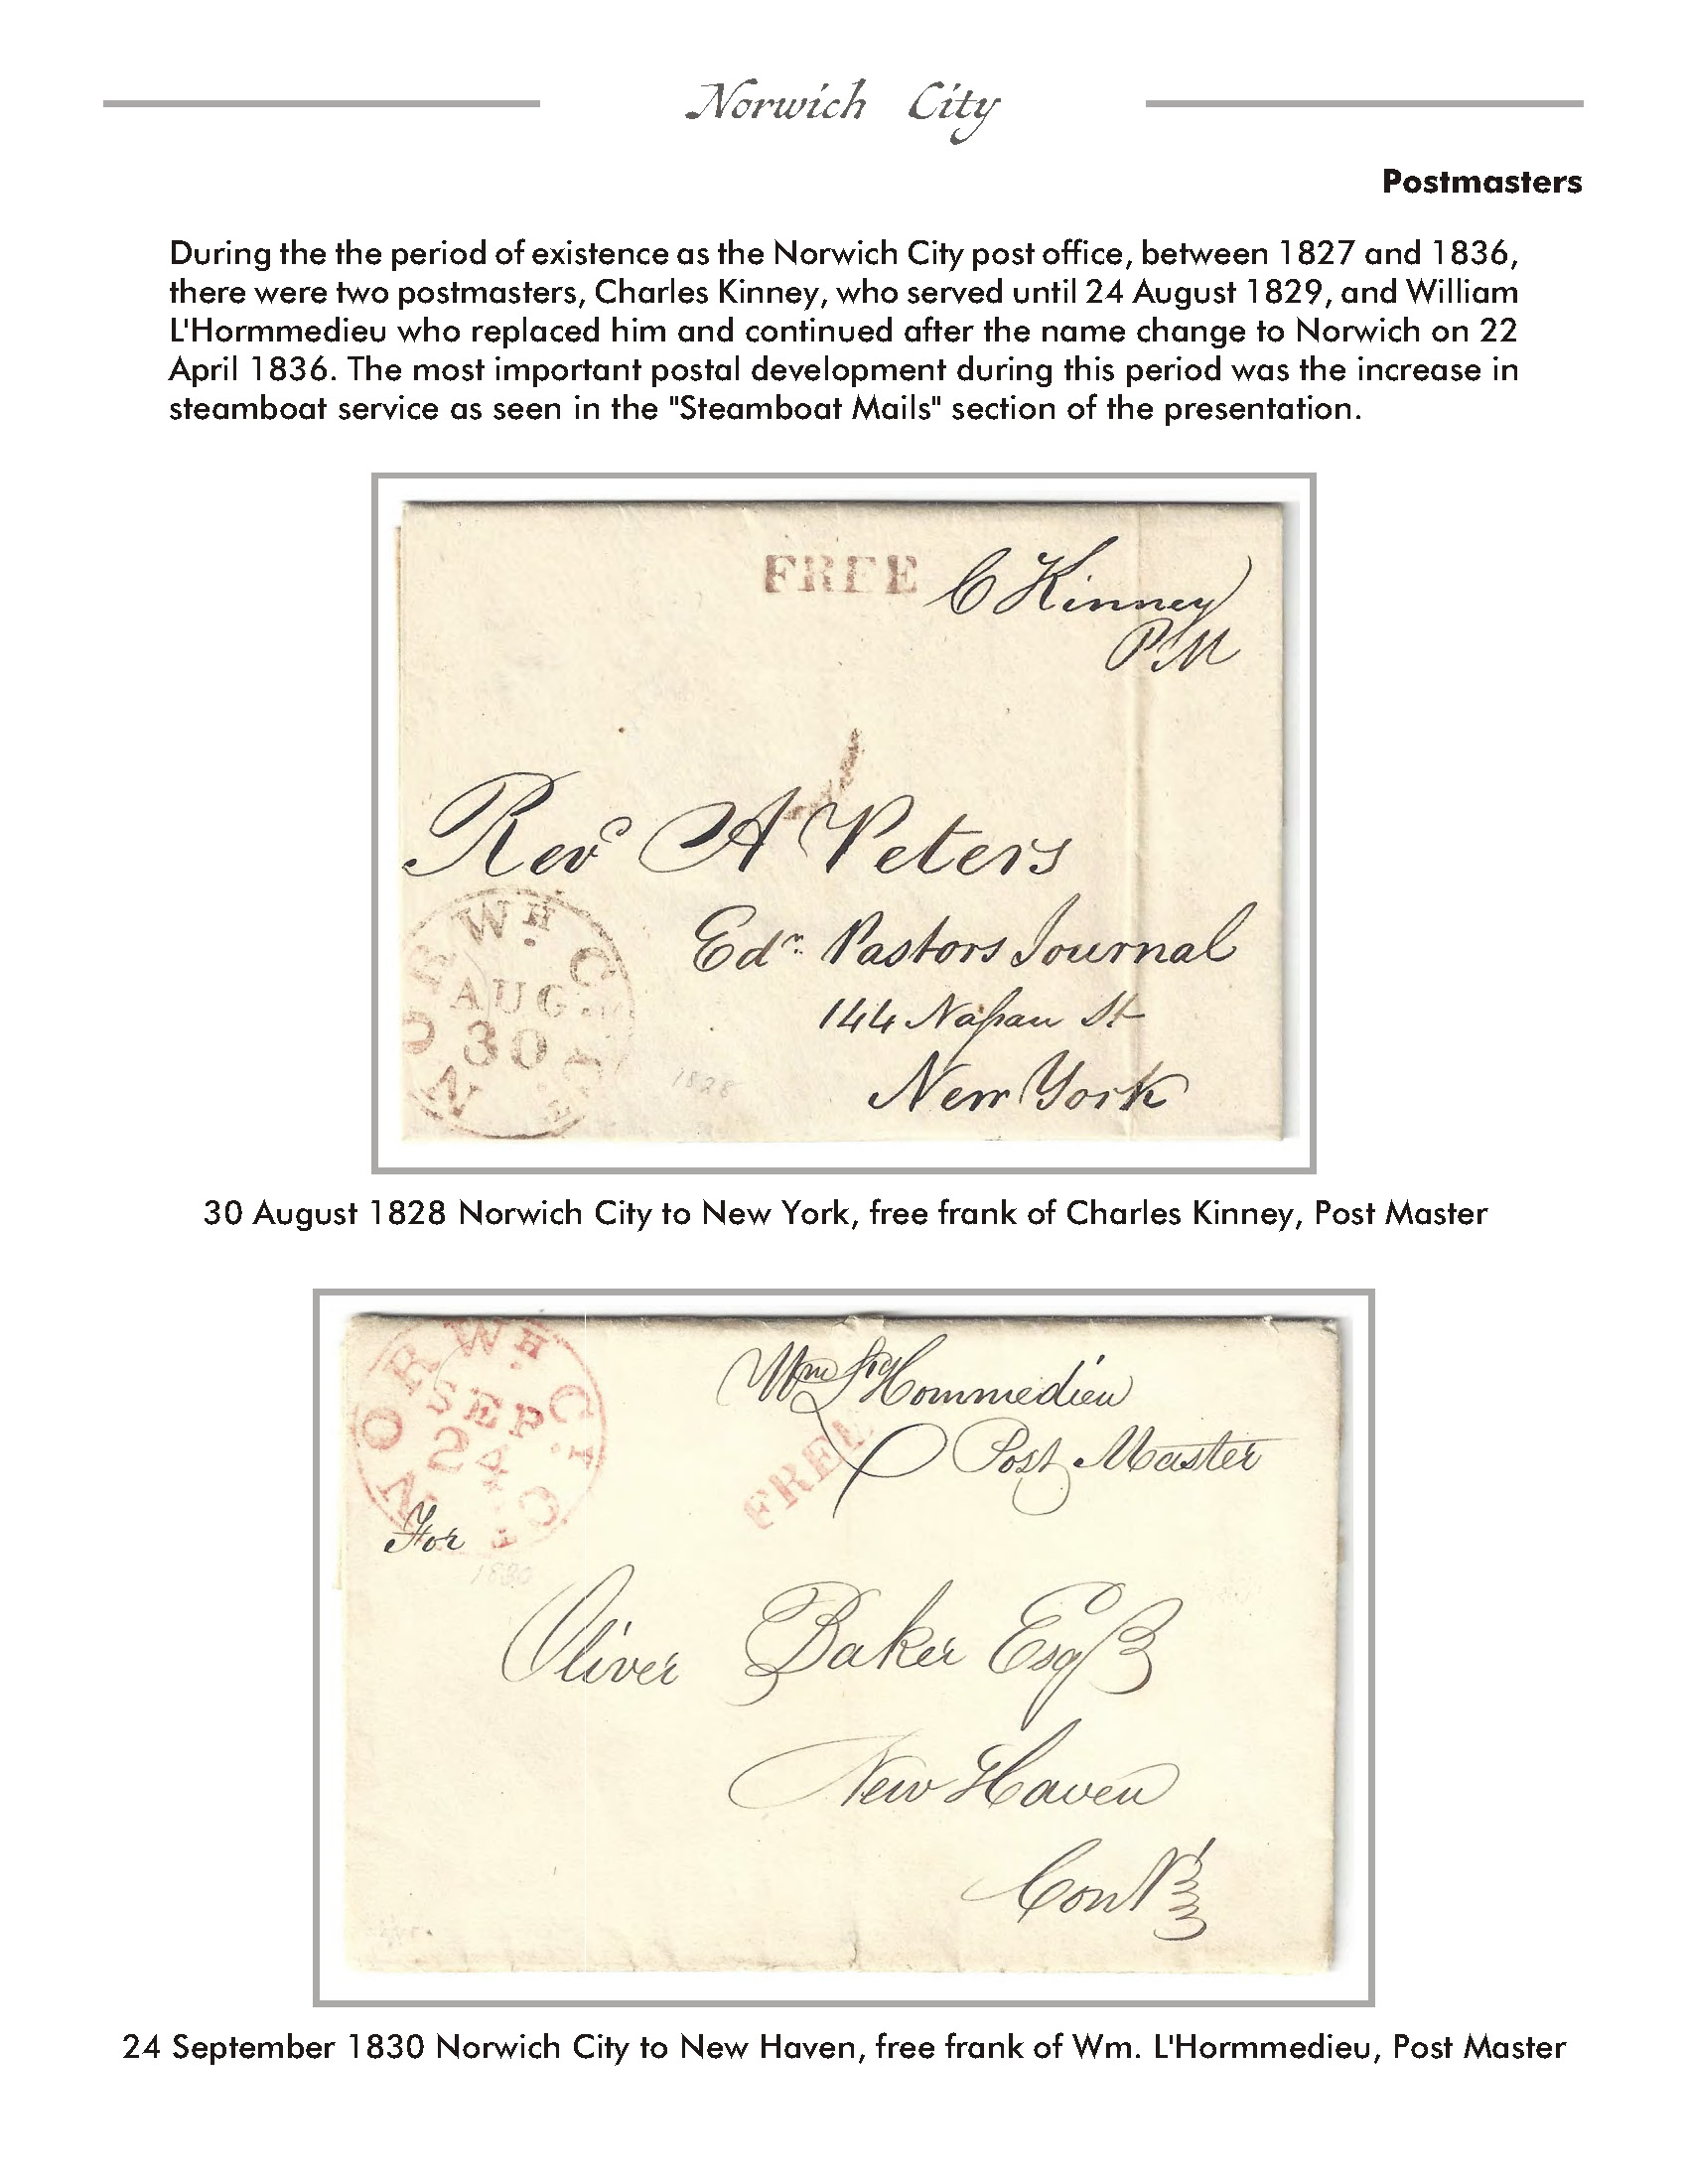 Norwich City
Postmasters
During the the period of existence as the Norwich City post office, between 1827 and 1836,
there were two postmasters, Charles Kinney, who served until 24 August 1829, and William
L'Hormmedieu who replaced him and continued after the name change to Norwich on 22
April 1836. The most important postal development during this period was the increase in
steamboat service as seen in the "Steamboat Mails" section of the presentation.
FREE
C Kinney
PM
Revd A Peters
Edr. Pastors Journal
144 Nassau St
New York
NORWH. CITY
AUG
30
1828
30 August 1828 Norwich City to New York, free frank of Charles Kinney, Post Master
NORWH. CITY CT
SEP
24
Wm L'Hommedieu
Post Master
FREE
For
1830
Oliver Baker Esqr
New Haven
Cont
24 September 1830 Norwich City to New Haven, free frank of Wm. L'Hormmedieu, Post Master